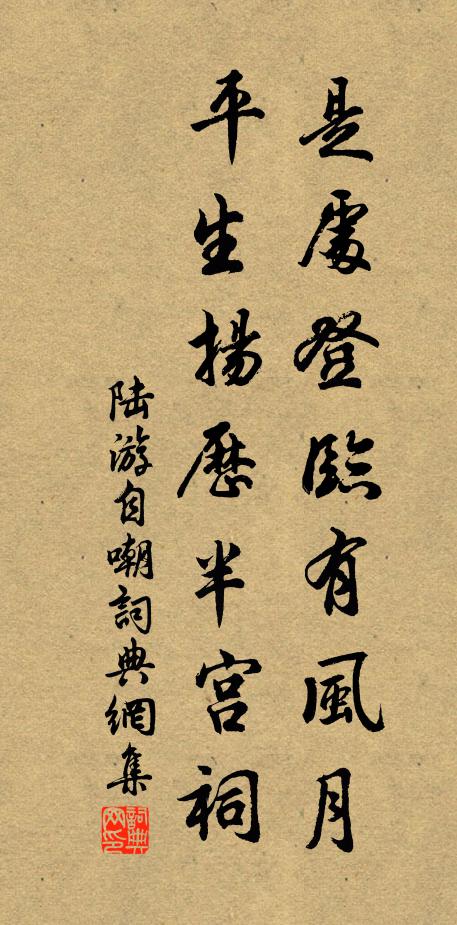 是處登臨有風月
平生揚歷半宮祠
陆游自嘲詞典網集
詞典網印